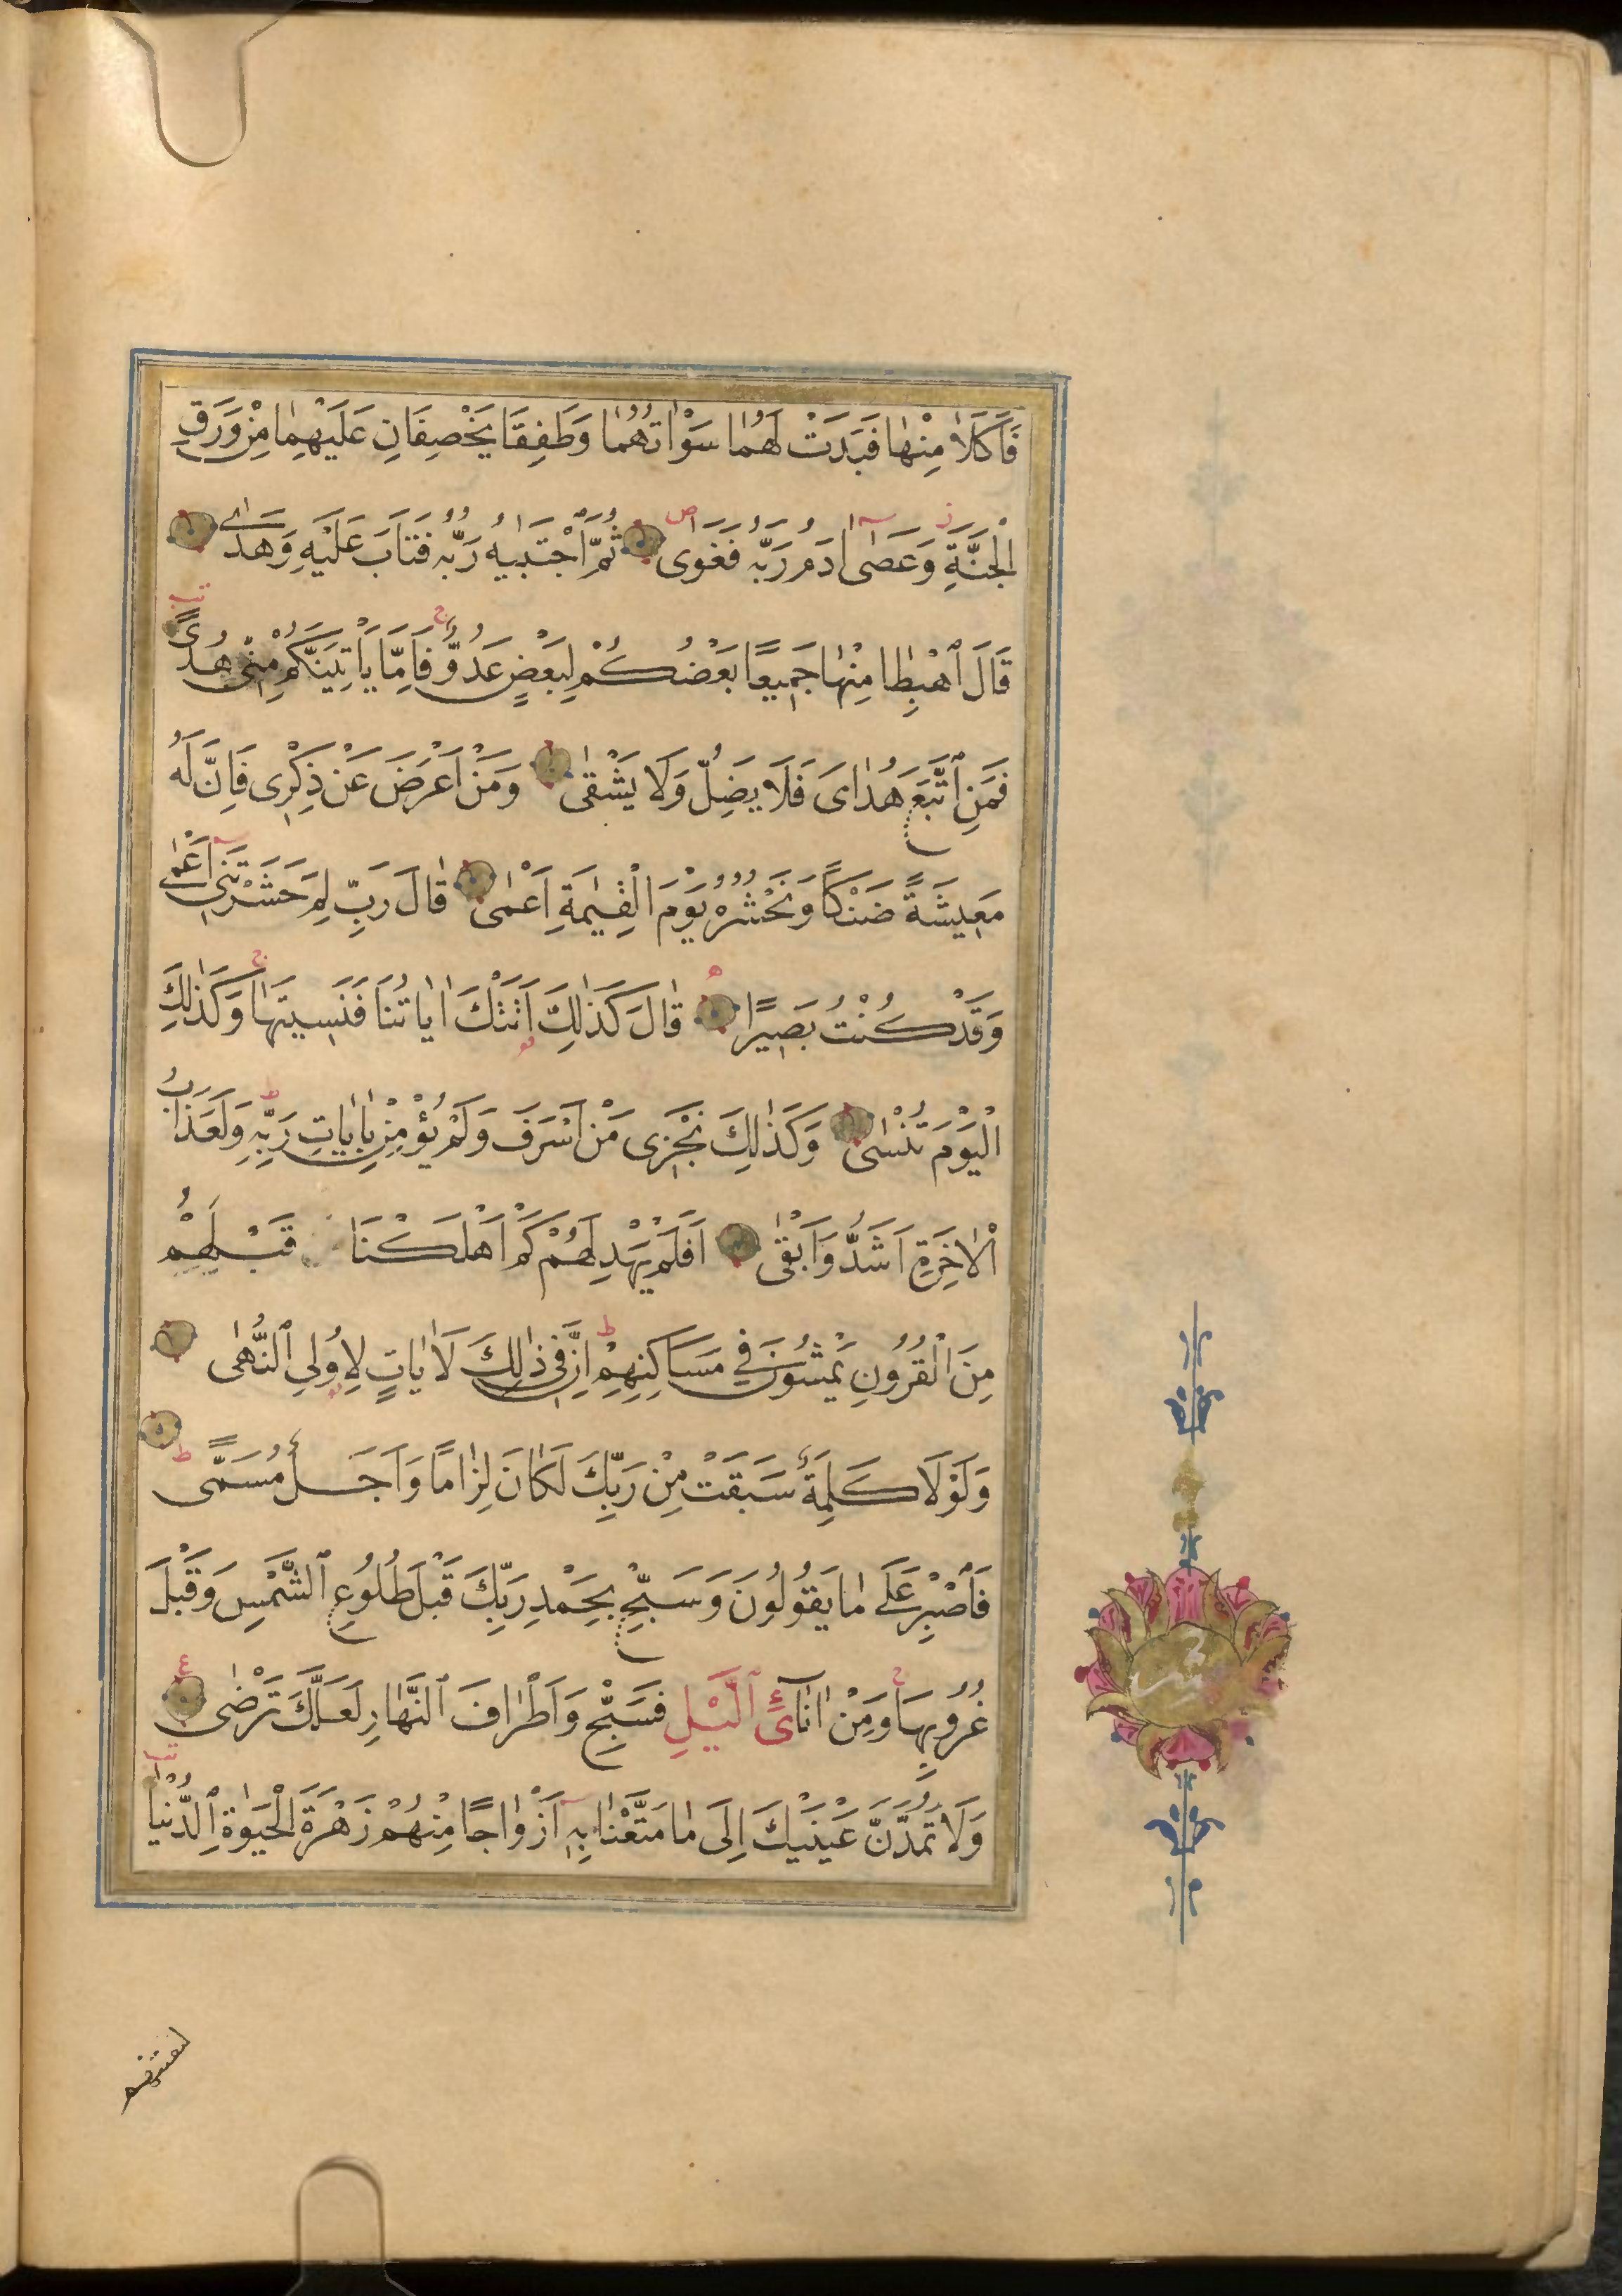 فَاَكَلَا مِنْهٰا فَبَدَتْ لَهُمٰا سَوْاٰتُهُمٰا وَطَفِقَا يَخْصِفَانِ عَلَيْهِمٰا مِنْ وَرَقِ
الْجَنَّةِ وَعَصٰىٓ اٰدَمُ رَبَّهُ فَغَوٰى ثُمَّ اجْتَبٰيهُ رَبُّهُ فَتَابَ عَلَيْهِ وَهَدٰى
قَالَ ٱهْبِطٰا مِنْهٰا جَمِيعًا بَعْضُكُمْ لِبَعْضٍ عَدُوٌّ فَاِمّٰا يَاْتِيَنَّكُمْ مِنّٖى هُدًى
فَمَنِ ٱتَّبَعَ هُدٰاىَ فَلَا يَضِلُّ وَلَا يَشْقٰى وَمَنْ اَعْرَضَ عَنْ ذِكْرِى فَاِنَّ لَهُ
مَعٖيشَةً ضَنْكًا وَنَحْشُرُهُ يَوْمَ الْقِيٰمَةِ اَعْمٰى قٰالَ رَبِّ لِمَ حَشَرْتَنٖىٓ اَعْمٰى
وَقَدْ كُنْتُ بَصٖيرًا قٰالَ كَذٰلِكَ اَتَتْكَ اٰيٰاتُنَا فَنَسٖيتَهٰا وَكَذٰلِكَ
الْيَوْمَ تُنْسٰى وَكَذٰلِكَ نَجْزٖى مَنْ اَسْرَفَ وَلَمْ يُؤْمِنْ بِاٰيٰاتِ رَبِّهٖ وَلَعَذَابُ
الْاٰخِرَةِ اَشَدُّ وَاَبْقٰى اَفَلَمْ يَهْدِ لَهُمْ كَمْ اَهْلَكْنَا قَبْلَهُمْ
مِنَ الْقُرُونِ يَمْشُونَ فٖي مَسَاكِنِهِمْ اِنَّ فٖى ذٰلِكَ لَاٰيٰاتٍ لِاُولِي ٱلنُّهٰى
وَلَوْلَا كَلِمَةٌ سَبَقَتْ مِنْ رَبِّكَ لَكَانَ لِزٰامًا وَاَجَلٌ مُسَمًّى
فَاصْبِرْ عَلٰى مٰا يَقُولُونَ وَسَبِّحْ بِحَمْدِ رَبِّكَ قَبْلَ طُلُوعِ ٱلشَّمْسِ وَقَبْلَ
غُرُوبِهَا وَمِنْ اٰنٰآئِ ٱلَّيْلِ فَسَبِّحْ وَاَطْرٰافَ ٱلنَّهٰارِ لَعَلَّكَ تَرْضٰى
وَلَا تَمُدَّنَّ عَيْنَيْكَ اِلٰى مٰا مَتَّعْنٰا بِهٖٓ اَزْوٰاجًا مِنْهُمْ زَهْرَةَ الْحَيٰوةِ ٱلدُّنْيٰا
لنفتنهم